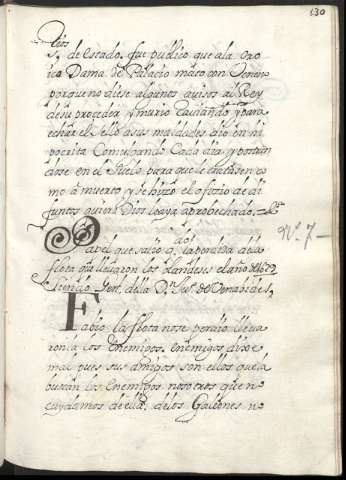 130
de estado. fue publico que a la
Dama de Palacio mato con veneno
porque no diese algunos avisos al Rey
de su proceder y murio rabiando y para
echar el sello a sus maldades dio en
pocrita Comulgando Cada dia y
dose en el suelo para que le tratasen co
mo a muerto y se hizo el oficio de di
funtos quiera Dios le aya aprobechado.
Nº. 7
Papel que salio a la perdida de la
flota que lleuaron los olandeses el año de 1629
siendo Gen. della D. Ju.º de Venabides,
Fabio la flota no se perdio lleua
ron la los enemigos. enemigos dixe
mal pues sus amigos son ellos que la
buscan los enemigos nosotros que no
cuydamos de ella. de los Galeones no